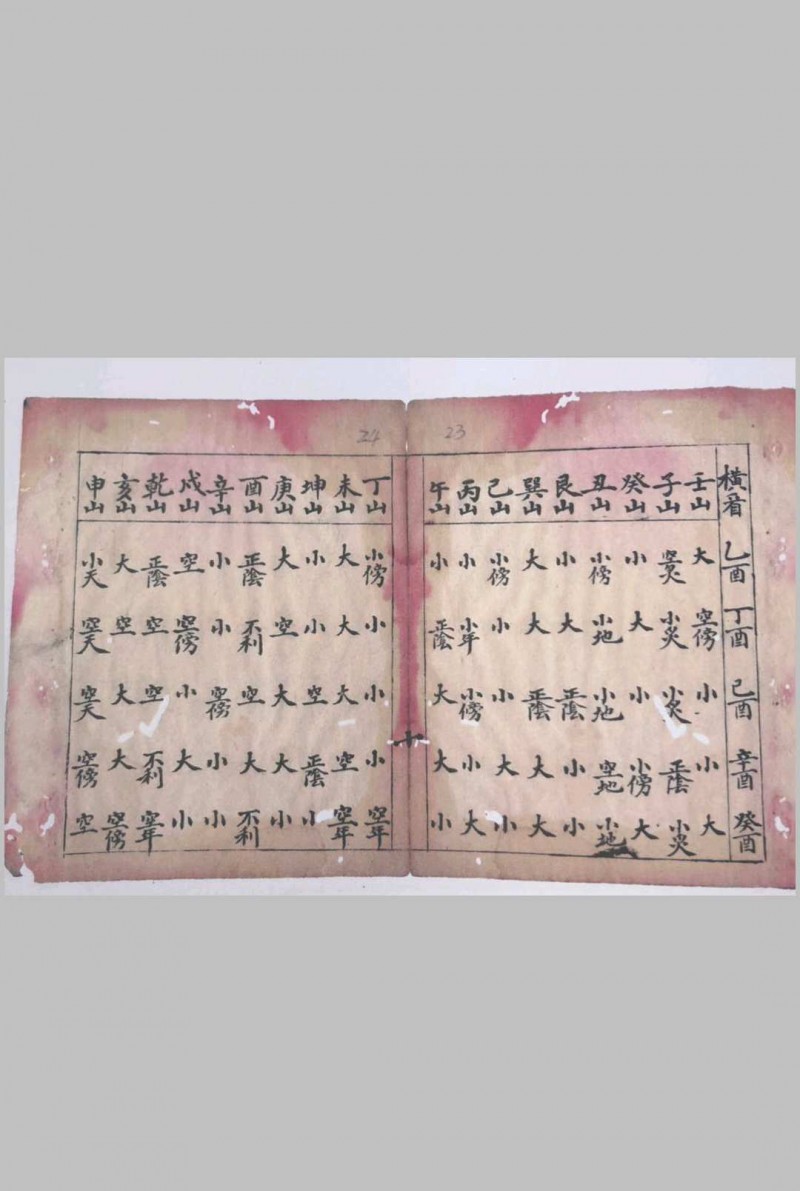 23
橫看 壬山 子山 癸山 丑山 艮山 巽山 己山 丙山 午山
乙酉 大 空炎 小 小傍 小 大 小傍 小 小
丁酉 空傍 小炎 大 小地 大 大 小 小年 正陰
己酉 小 小炎 小 小地 正陰 正陰 小 小傍 大
辛酉 小 正陰 小傍 空地 小 大 大 小 大
癸酉 大 小炎 大 小地 小 大 小 大 小
24
丁山 未山 坤山 庚山 酉山 辛山 戌山 乾山 亥山 申山
小傍 大 小 大 正陰 小 空 正陰 大 小天
小 大 小 空 不利 小 空傍 空 空 空天
小 大 空 大 空 空傍 小 空 大 空天
小 空 正陰 大 大 小 大 不利 大 空傍
空年 空年 小 小 不利 小 小 空年 空傍 空